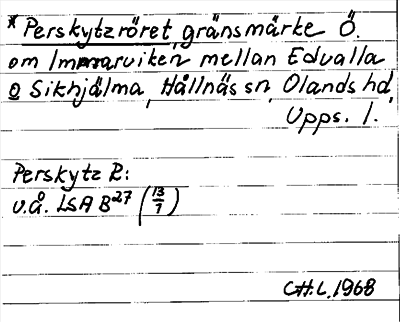 * Perskytzröret, gränsmärke Ö.
om Immarviken mellan Edvalla
o Sikhjälma, Hållnäs sn, Olands hd,
Upps. l.
Perskytz R:
v.å. LSA B27 (13/7)
C.H.L. 1968